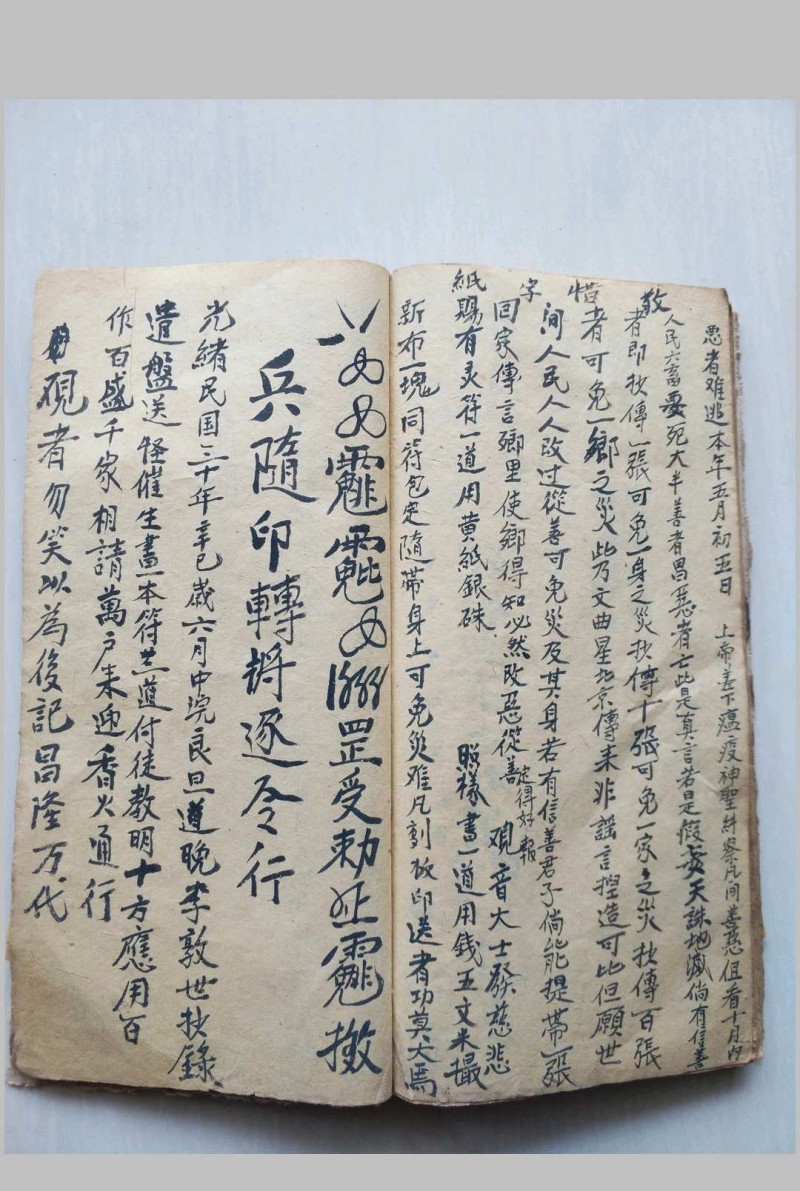 愚者难逃本年五月初五日 上帝差下瘟疫神聖糾察凡间善惡但看十月內
人民六畜要死大半善者昌惡者亡此是真言若是假妄天誅地滅倘有信善
敬
者即抄傳一張可免一身之災抄傳十張可免一家之災抄傳百張
惜
者可免一鄉之災此乃文曲星北京傳来非謡言揑造可比但願世
間人民人人改过從善可免災及其身若有信善君子倘能提帶一張
字
回家傳言鄉里使鄉得知必然改惡從善定得好報 观音大士發慈悲
紙
賜有灵符一道用黄紙銀硃 照樣畫一道用錢五文米撮
新布一塊同符包定隨帶身上可免災难凡刻板印送者功莫大焉
罡受勅 撤
兵隨印轉將逐令行
光緒民国三十年辛巳歲六月中浣良旦道晚李敦世抄錄
遣盤送 催生畫一本符 道付徒教明十方應用百
作百盛千家相請萬户来迎香火通行
观者勿笑以為後記昌隆万代